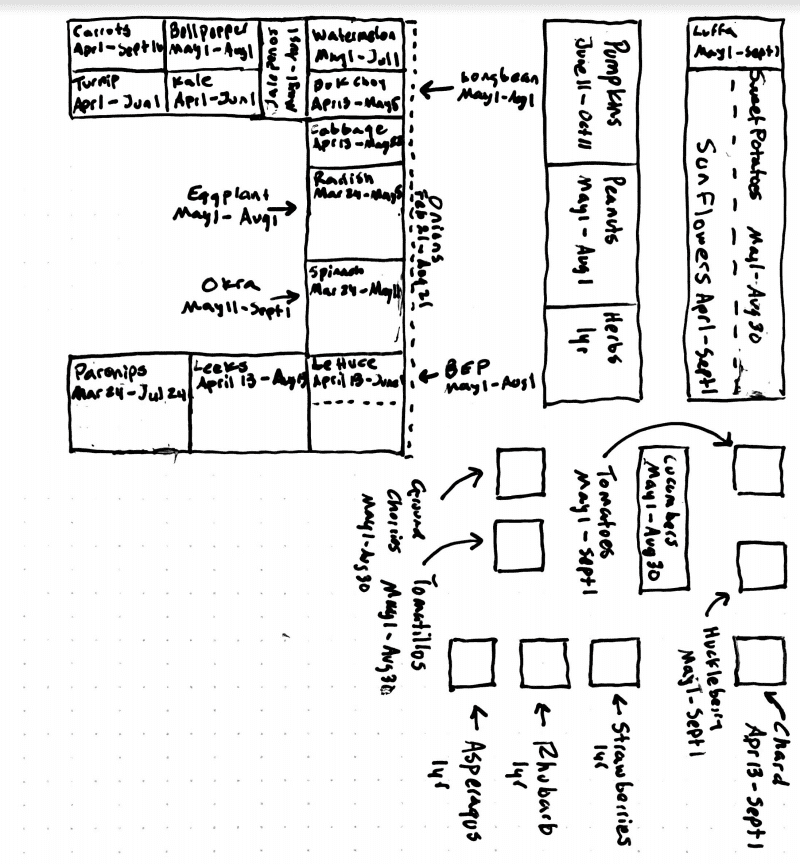 Carrots
Apr1-Sept16
Bell pepper
May1-Aug1
Jalapenos
May1-Aug1
Watermelon
May1-Jul1
Turnip
Apr1-Jun1
Kale
Apr1-Jun1
Bok Choy
Apr13-May5
Longbean
May1-Aug1
Cabbage
Apr13-May
Radish
Mar24-May5
Eggplant
May1-Aug1
Onions
Feb21-Aug21
Okra
May11-Sept1
Spinach
Mar24-May11
Parsnips
Mar24-Jul24
Leeks
April 13-Aug
Lettuce
April 13-June1
BEP
May1-Aug1
Pumpkins
June11-Oct11
Peanuts
May1-Aug1
Herbs
1yr
Luffa
May1-Sept1
Sweet Potatoes May1-Aug30
Sunflowers Apr1-Sept1
Ground
Cherries
May1-Aug30
Tomatillos
May1-Aug30
Tomatoes
May1-Sept1
Cucumbers
May1-Aug30
Huckleberry
May1-Sept1
Chard
Apr13-Sept1
Strawberries
1yr
Rhubarb
1yr
Asperagus
1yr